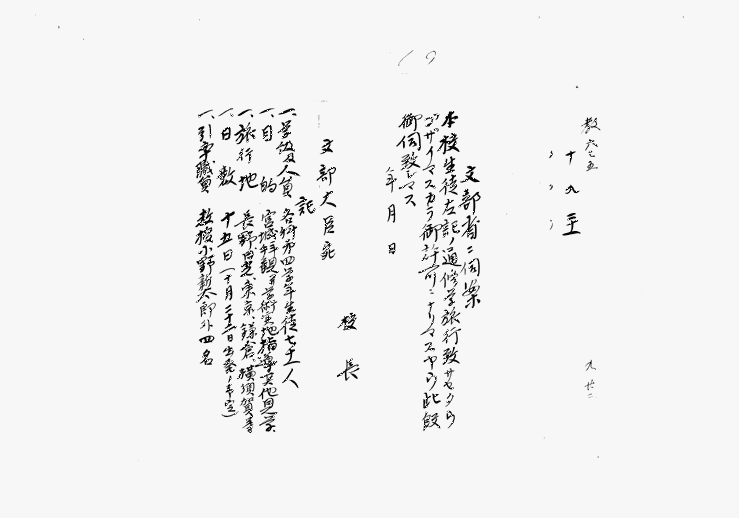 教六七五
十九三十
九廿二
文部省ニ伺案
本校生徒左記ノ通修学旅行致サセタウ
ゴザイマスカラ御許可ニナリマスヤウ此段
御伺致シマス
年月日
校長
文部大臣宛
記
一、学級及人員 各科第四学年生徒七十一人
一、目的 宮城拝観並学術実地指導其他見学
一、旅行地 長野、日光、東京、鎌倉、横須賀等
一、日数 十五日(十月二十二日出発ノ予定)
一、引率職員 教授小野新太郎外四名